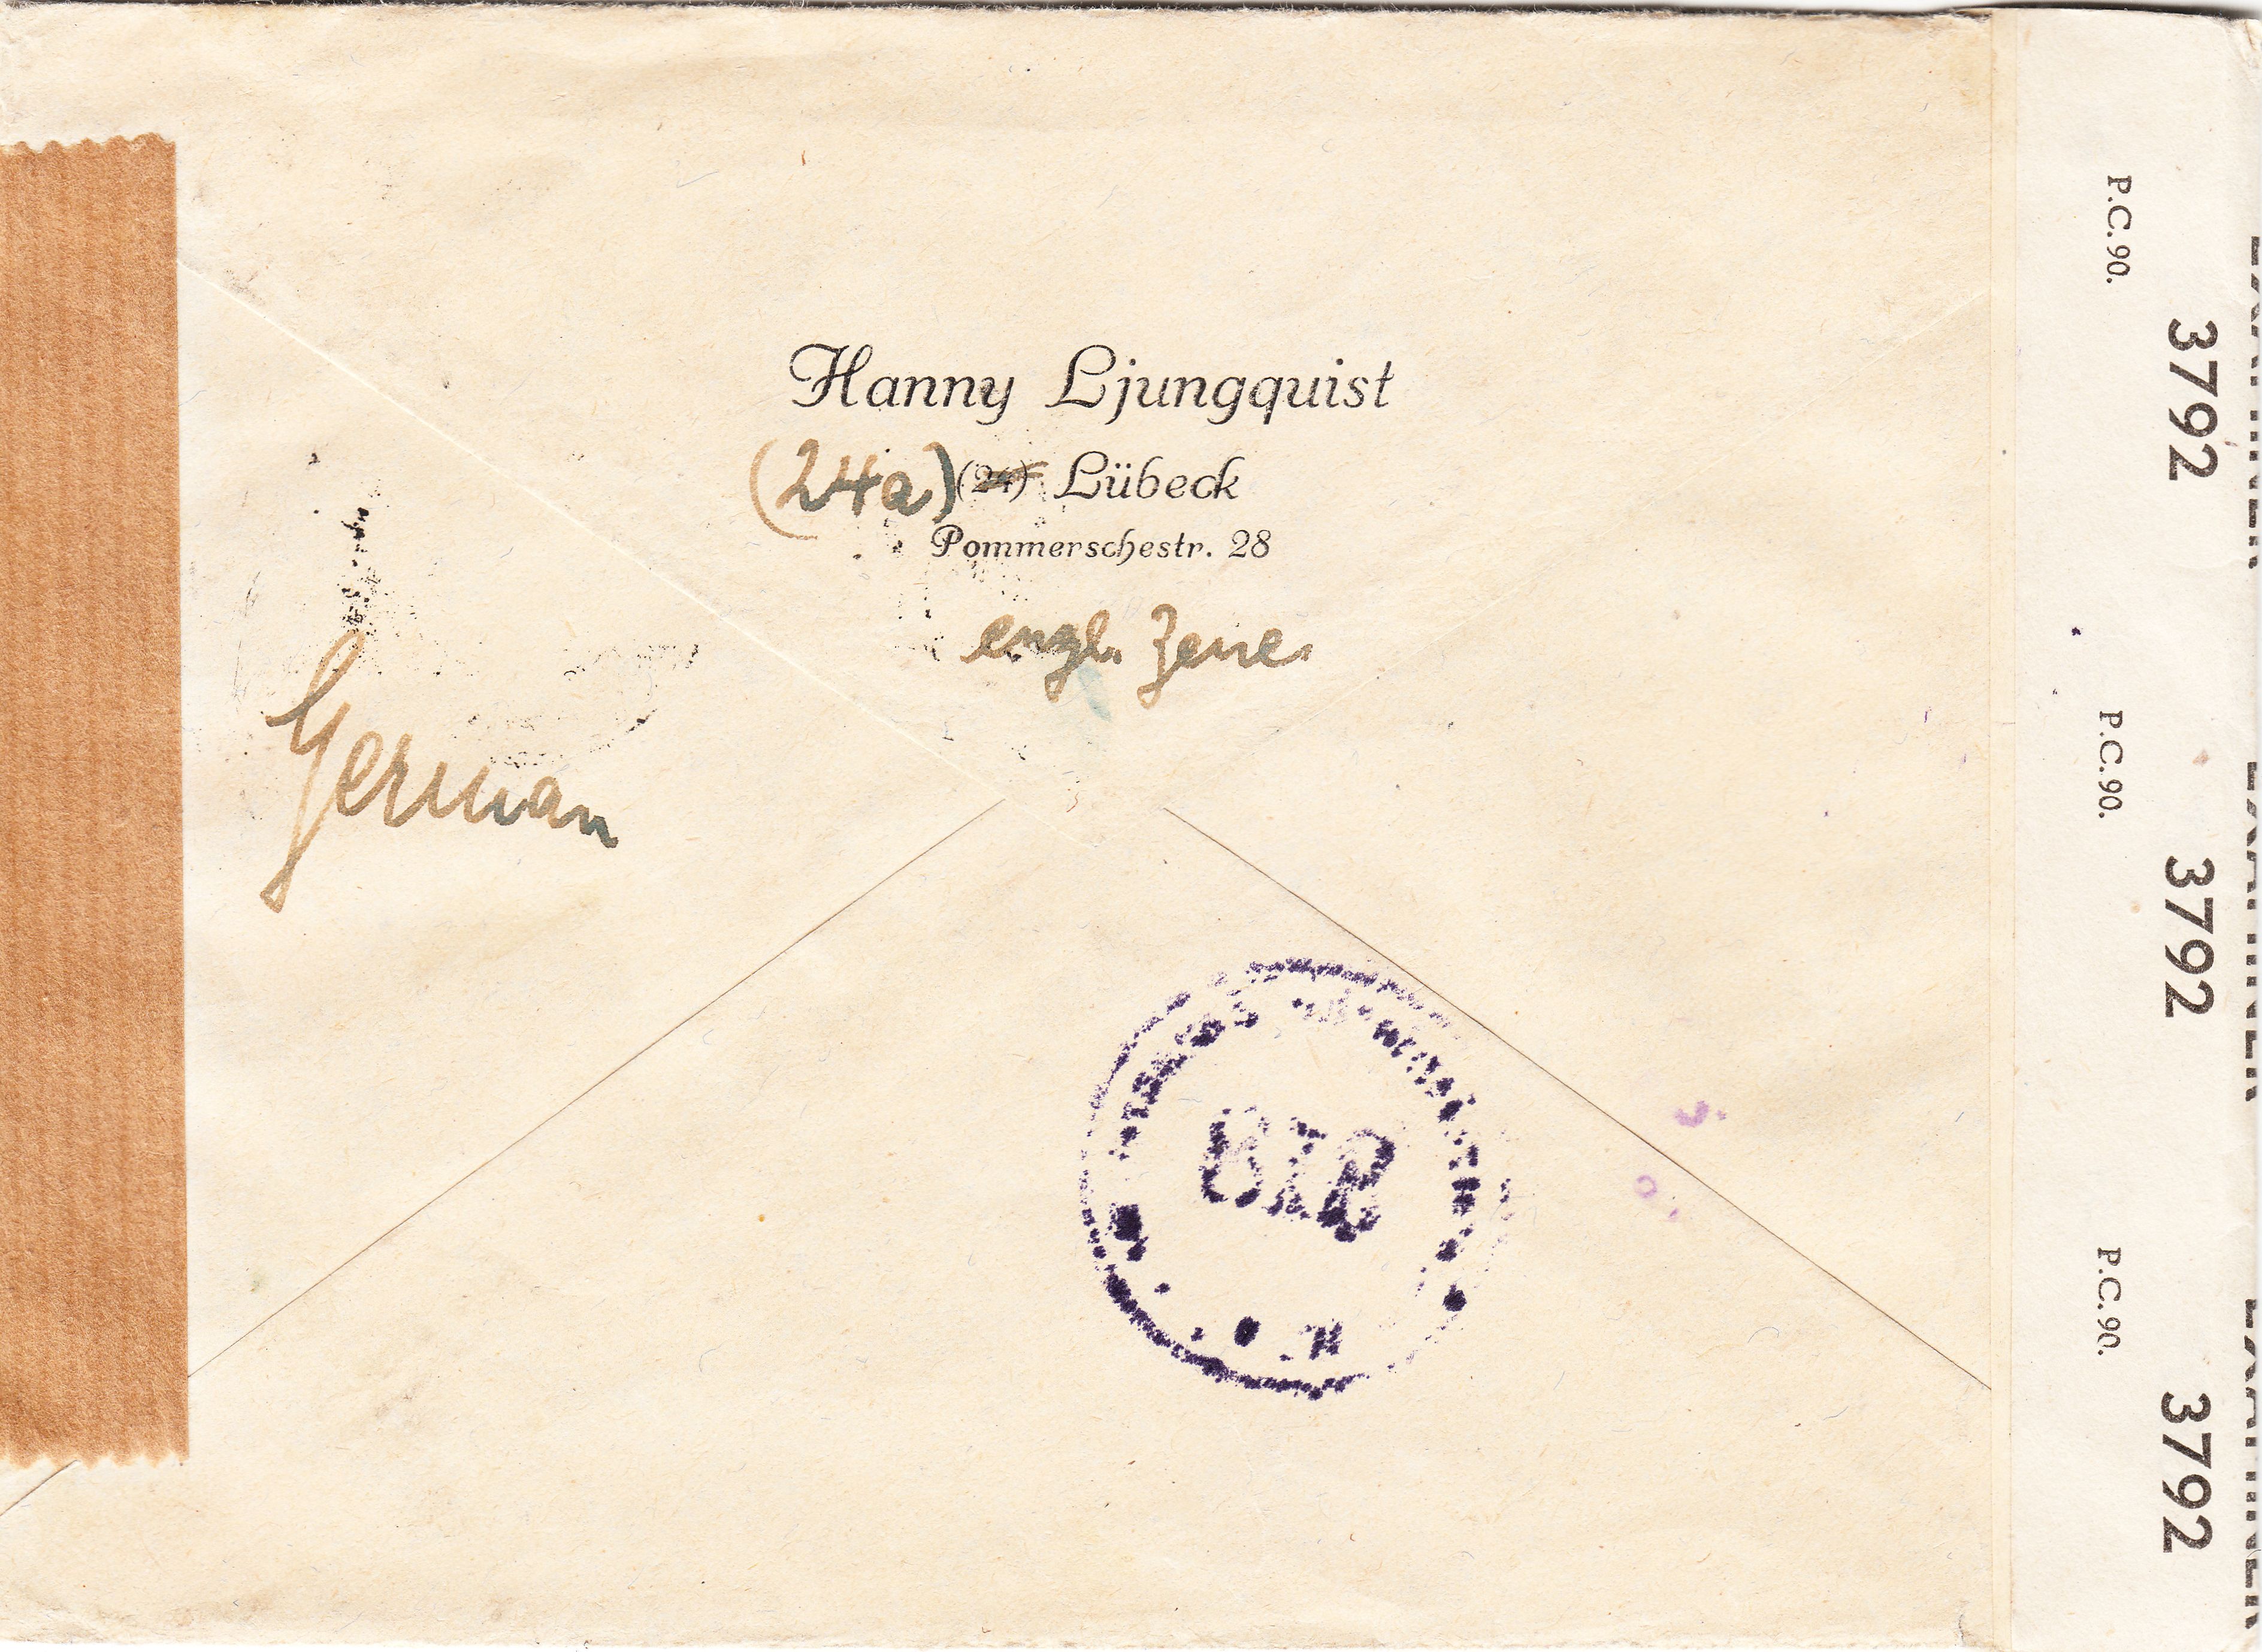 Hanny Ljungquist
(24a) (24) Lübeck
Pommerschestr. 28
engl. Zone
German
P.C.90.
3792
EXAMINER
P.C.90.
3792
EXAMINER
P.C.90.
3792
EXAMINER